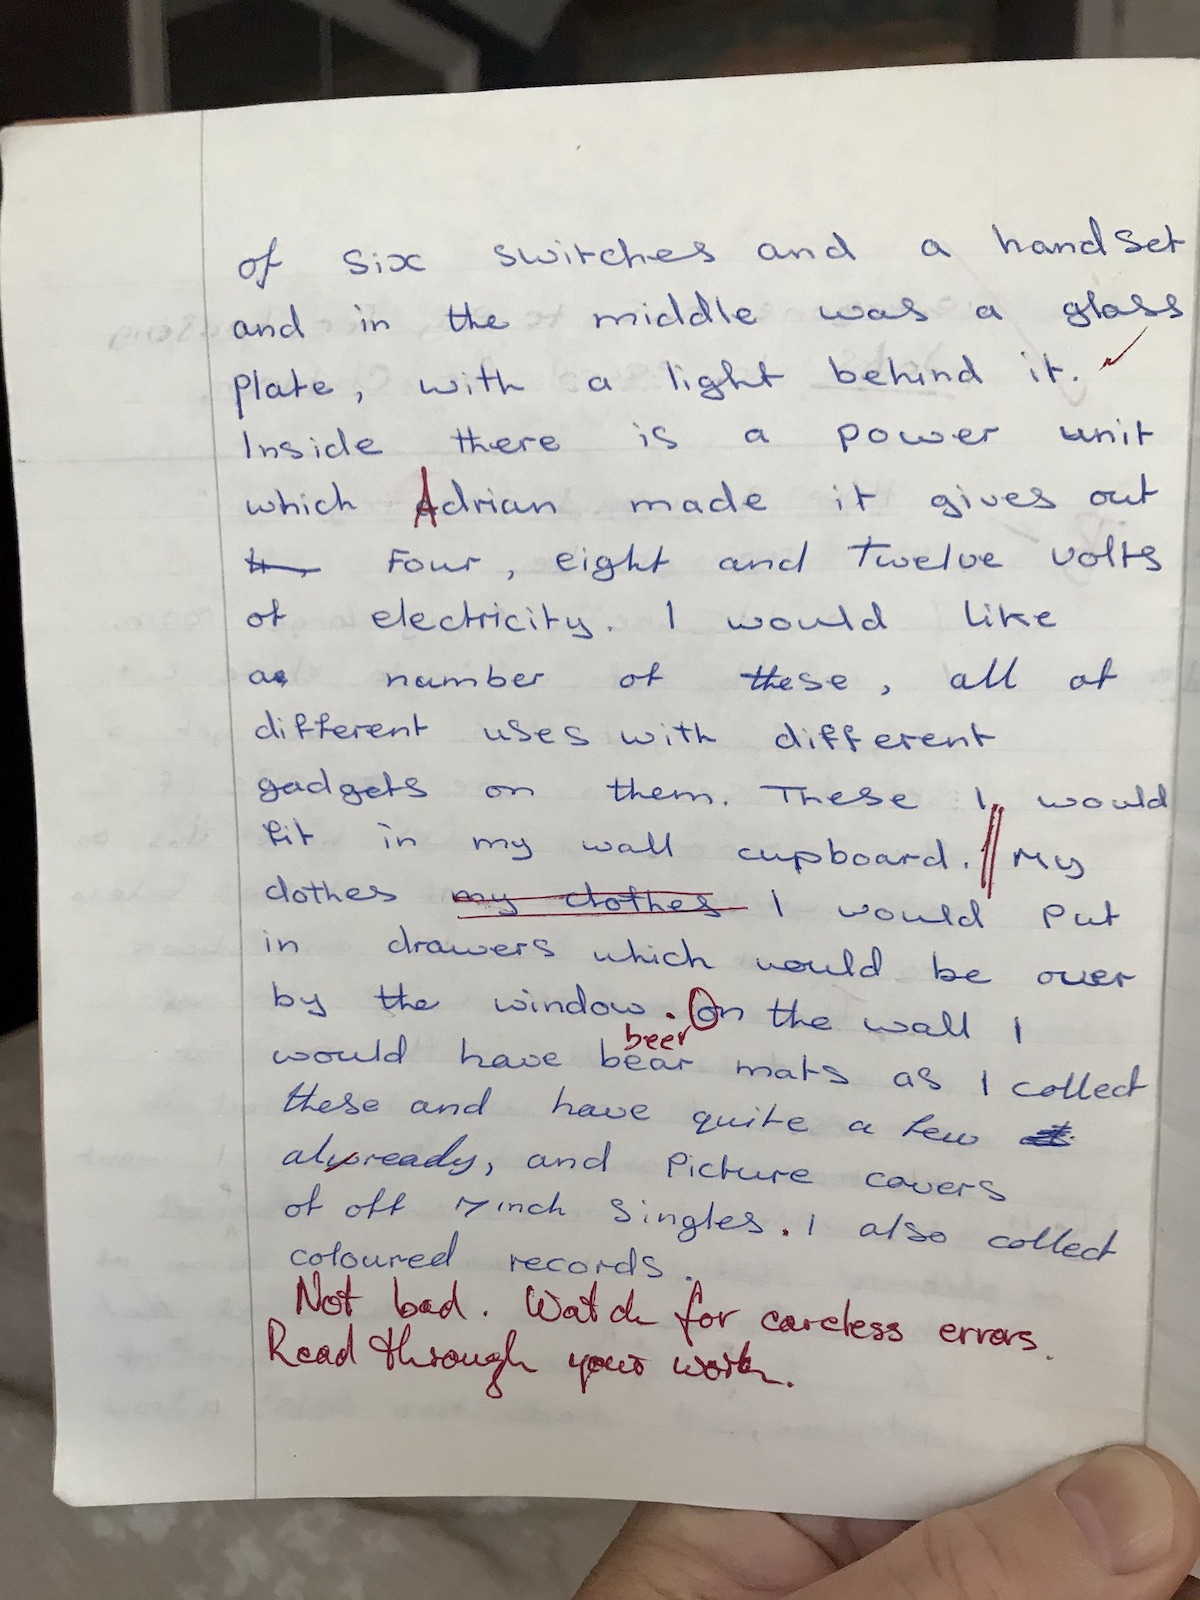 of six switches and a handset
and in the middle was a glass
plate, with a light behind it.
Inside there is a power unit
which Adrian made it gives out
Four, eight and Twelve volts
of electricity. I would like
a number of these, all of
different uses with different
gadgets on them. These I would
fit in my wall cupboard. // My
clothes my clothes I would put
in drawers which would be over
by the window. On the wall I
beer
would have bear mats as I collect
these and have quite a few
already, and picture covers
of off 7 inch singles. I also collect
coloured records.
Not bad. Watch for careless errors.
Read through your work.